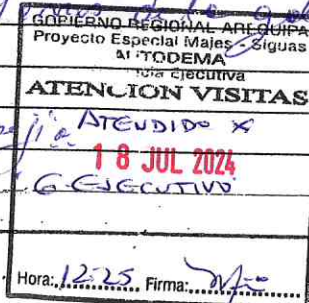 GOPIERNO REGIONAL AREQUIPA
Proyecto Especial Majes - Siguas
AUTODEMA
cia Ejecutiva
ATENCION VISITAS
ATENDIDO X
18 JUL 2024
G. EJECUTIVO
Hora: 12:25 Firma: